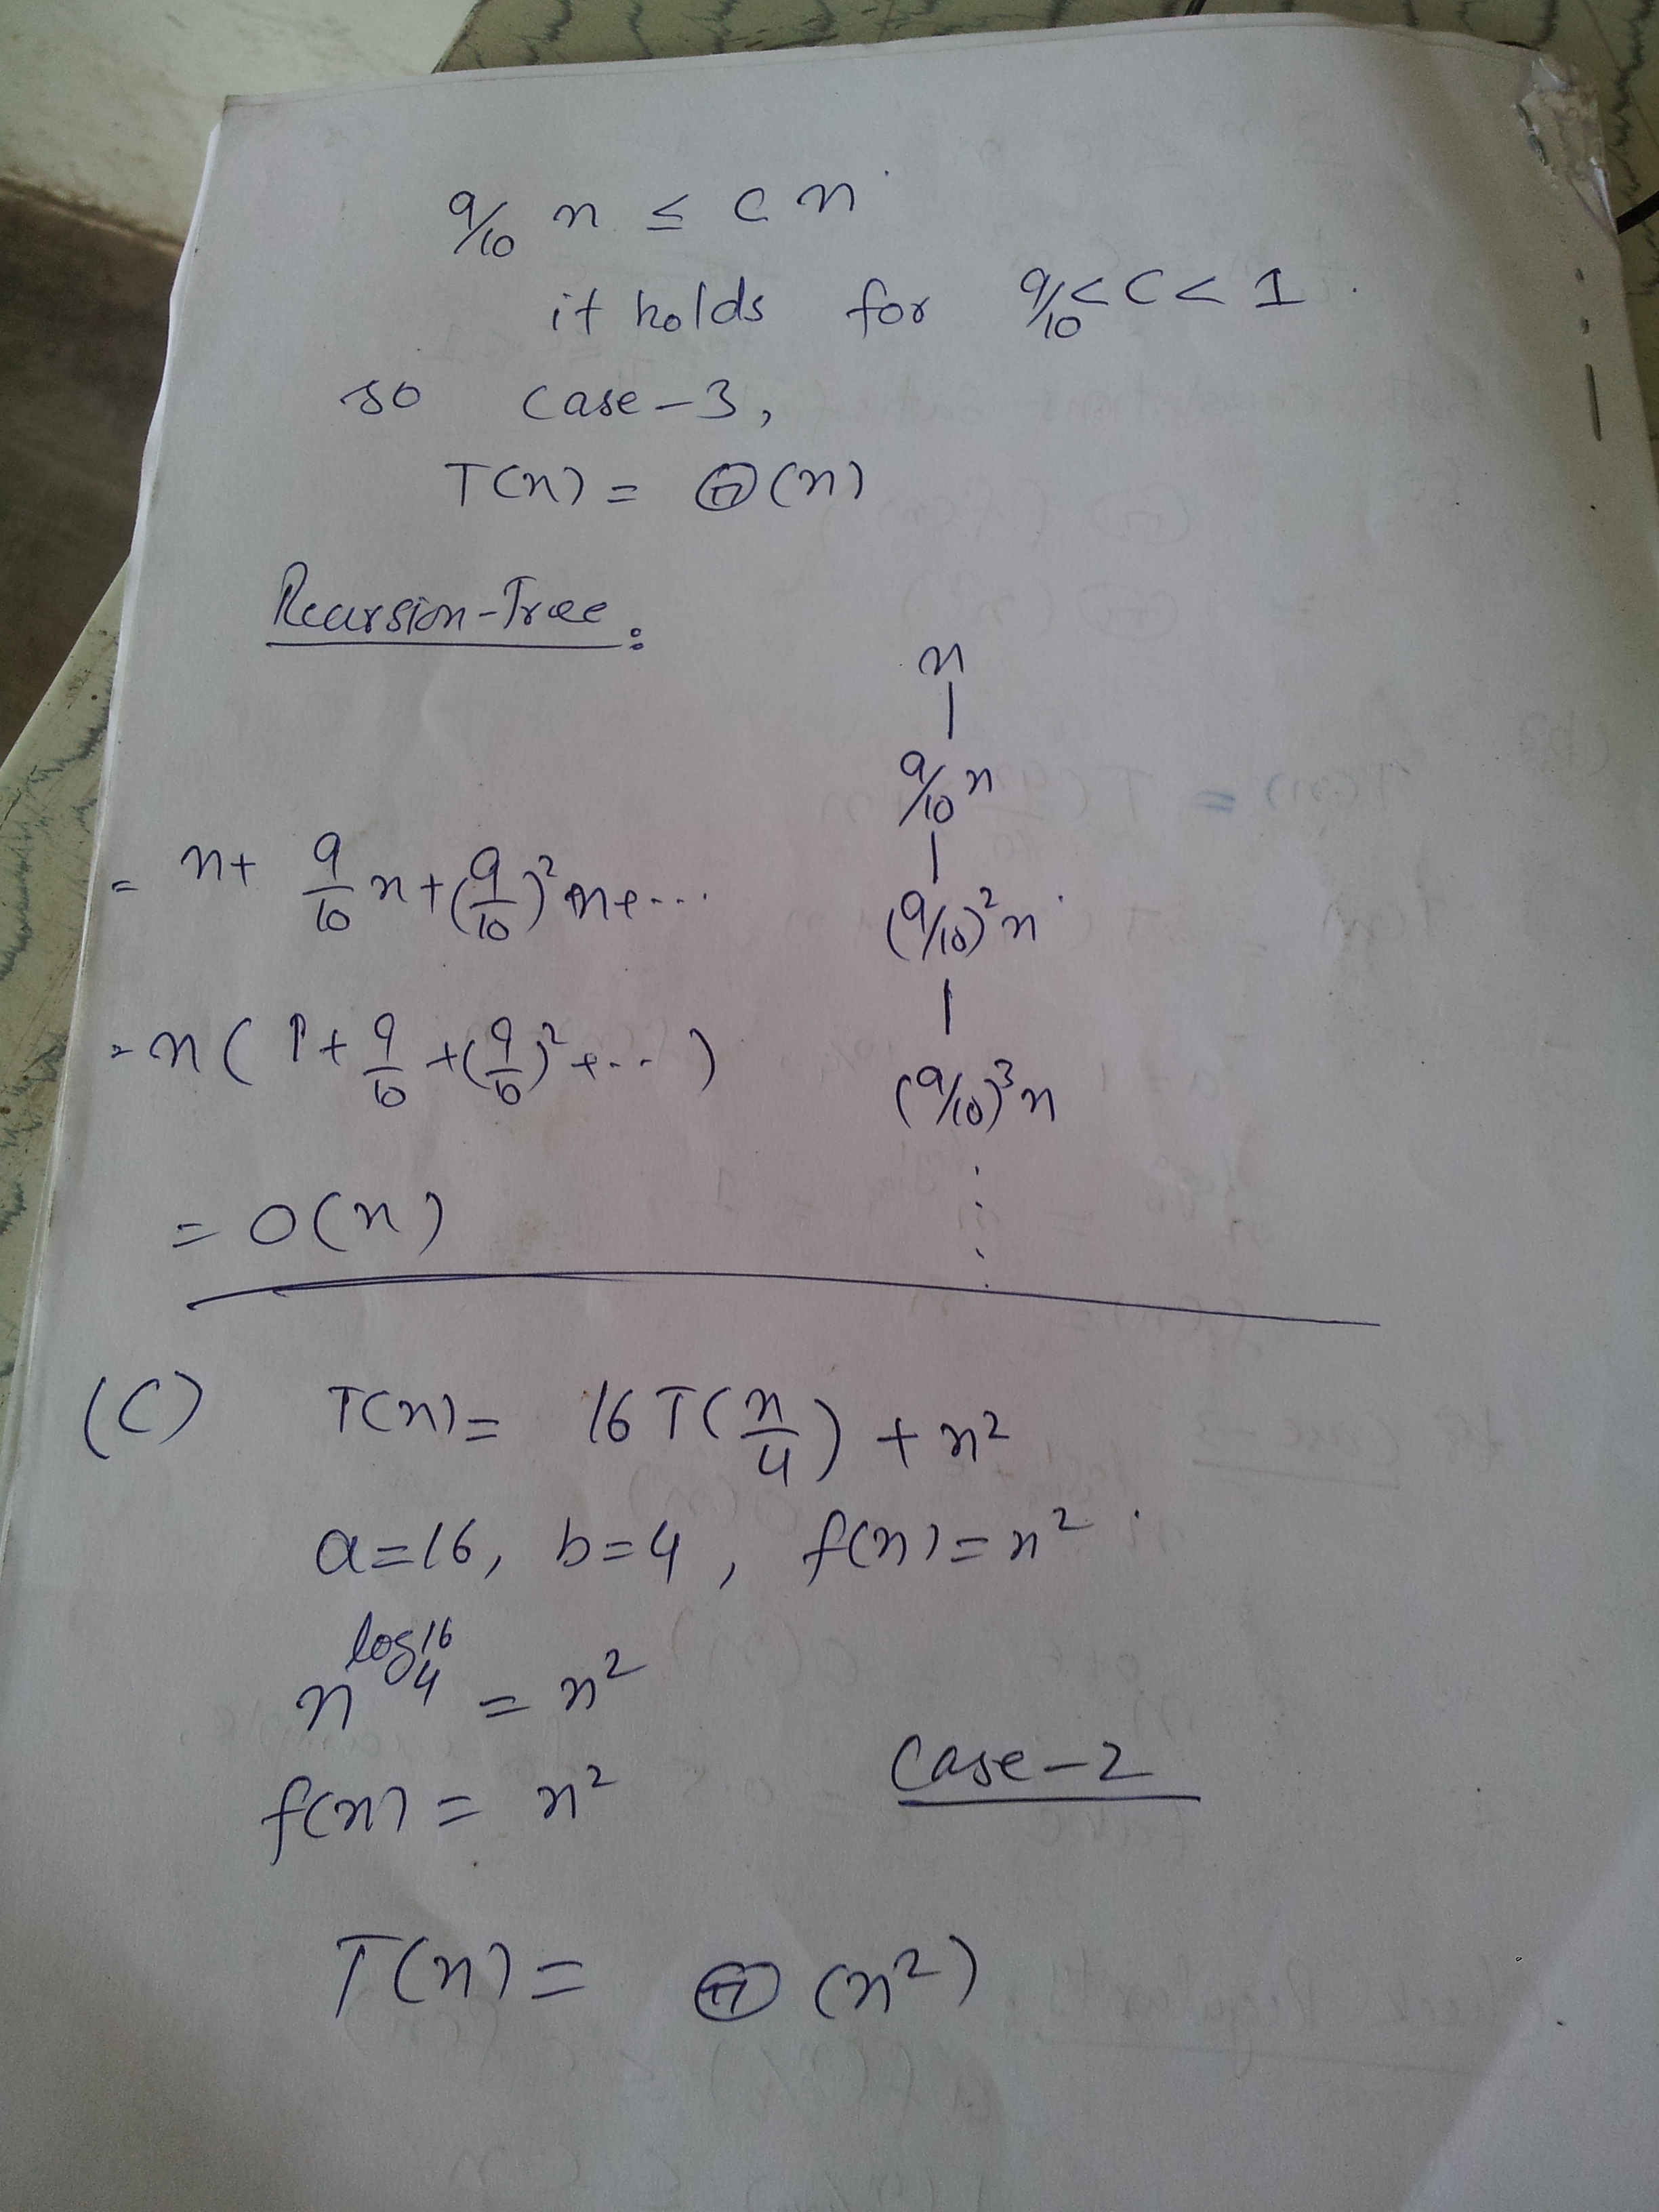 9/10 n ≤ c n
it holds for 9/10 < c < 1
so case-3,
T(n) = Θ(n)
Recursion-Tree:
n
9/10 n
(9/10)² n
(9/10)³ n
= n + 9/10 n + (9/10)² n + ...
= n (1 + 9/10 + (9/10)² + ...)
= O(n)
(C) T(n) = 16 T(n/4) + n²
a=16, b=4, f(n) = n²
n^log₄16 = n²
f(n) = n² Case-2
T(n) = Θ(n²)